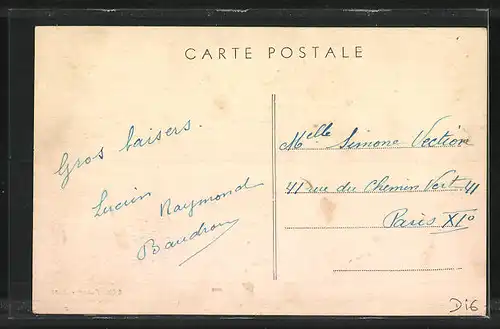 CARTE POSTALE
Gros baisers.
Lucien Raymond
Baudron
Melle Simone Vection
41 rue du Chemin Vert 41
Paris XIo
Di6